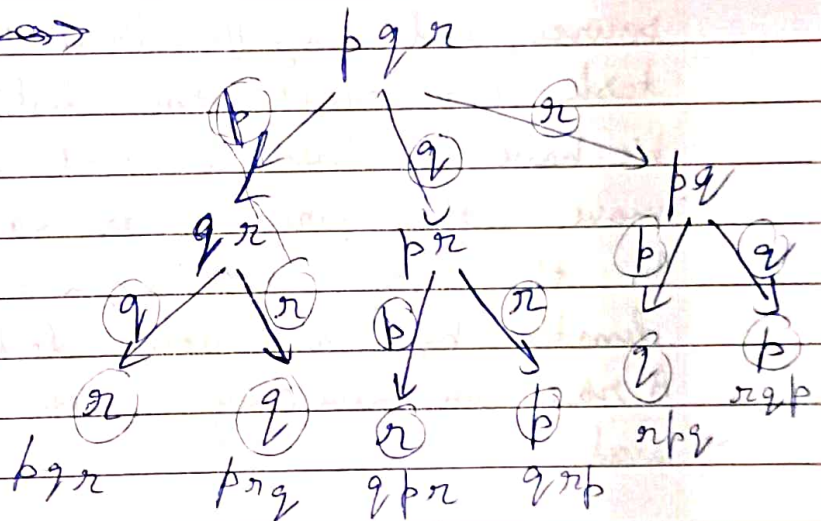 pqr
p q r
qr pr pq
q r p r p q
r q r p q p
pqr prq qpr qrp rpq rqp